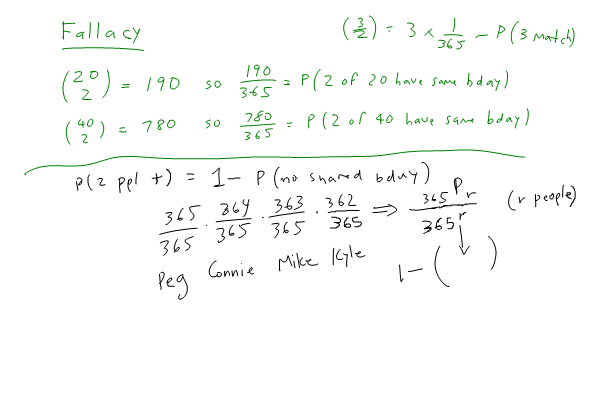 Fallacy
(3/2) = 3 × 1/365 - P(3 match)
(20 2) = 190 so 190/365 = P(2 of 20 have same bday)
(40 2) = 780 so 780/365 = P(2 of 40 have same bday)
P(2 ppl +) = 1 - P(no shared bday)
365/365 · 364/365 · 363/365 · 362/365 ⇒ 365Pr/365^r (r people)
Peg Connie Mike Kyle 1 - ( )